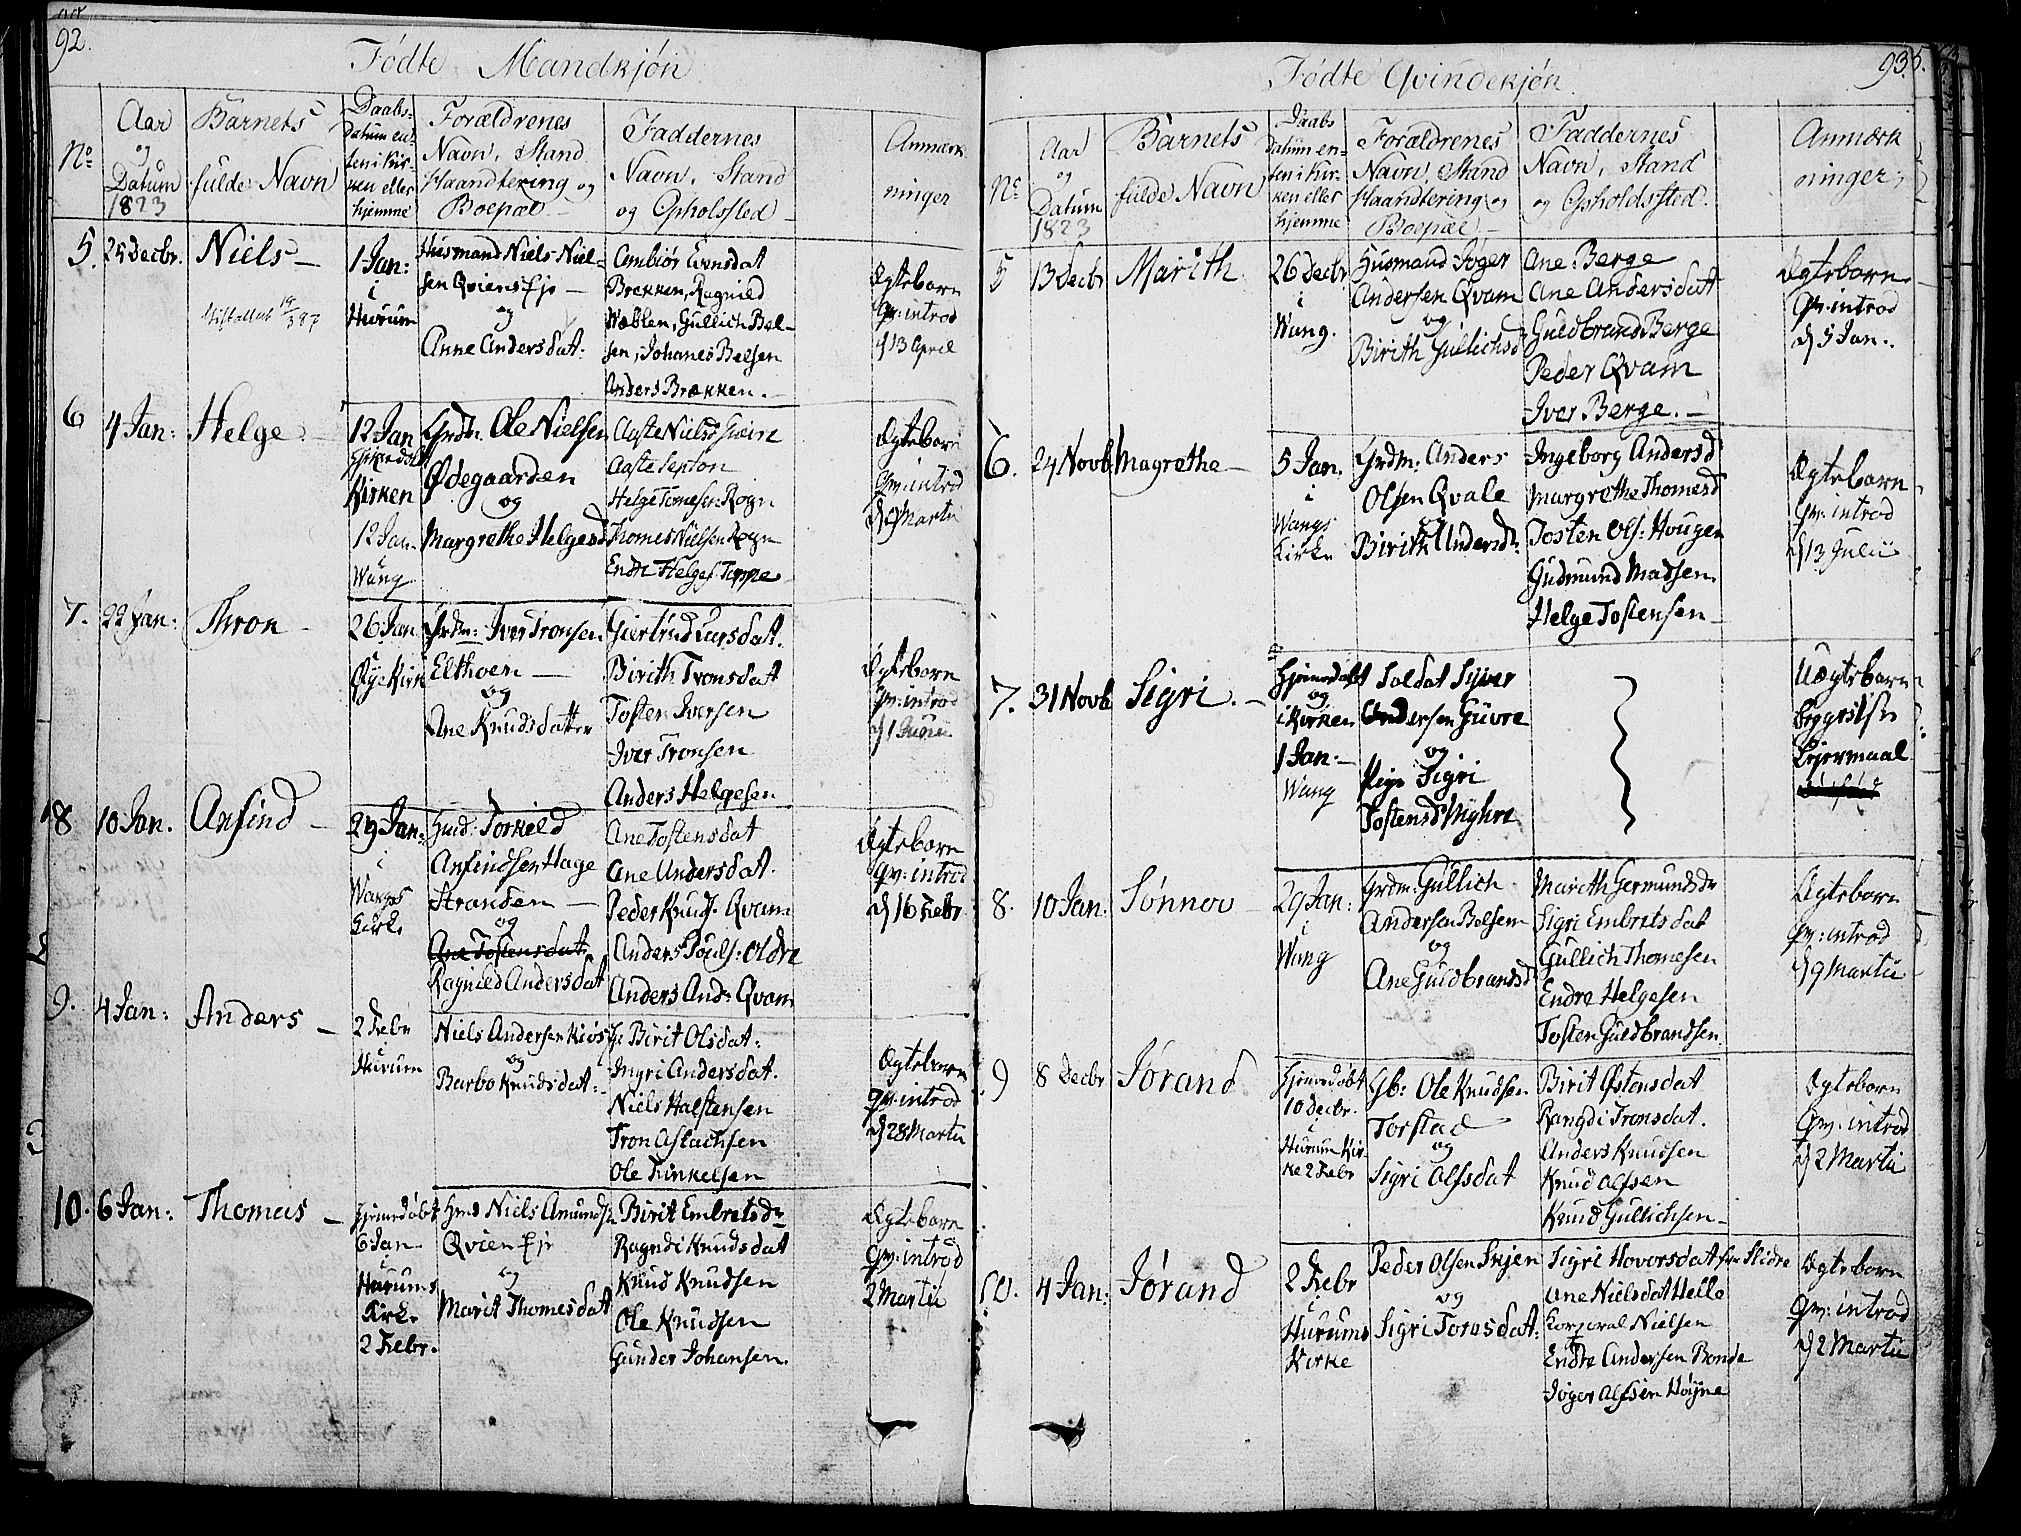 92.
Födte Mandkjön
No
Aar
og
Datum
1823
Barnets
fulde Navn
Daabs-
datum en-
ten i Kir-
ken eller
hjemme
Forældrenes
Navn, Stand
Haandtering og
Boepæl
Faddernes
Navn, Stand
og Opholssted
Anmærk
ninger
5.
25 Decbr.
Niels
1 Jan:
i
Hurum
Husmand Niels Niel-
sen Qviens Eje
og
Anne Andersdat:
Ambiör Evensdat
Brekken, Ragnild
Wæblen, Gullich Bel-
sen, Johanes Belsen
Anders Brækken.
Ægtebarn
Qv: introd
d 13 April
6
4 Jan:
Helge.
12 Jan
Hjemdöbt
Kirken
12 Jan.
Wang
Grdm. Ole Nielsen
Ödegaarden
og
Margrethe Helgesd
Aaste Nielsd
Aaste
Helge Tomesen Rogn
Thomes Nielsen Rogn
Endre Helges
Ægtebarn
Qv: introd
d 9 Martii
7.
22 Jan:
Thron
26 Jan
Öye Kirk
Grdm: Iver Tronsen
Elthoen
og
Ane Knudsdatter
Giertrud Larsdat.
Birith Tronsdat
Tosten Iversen
Iver Tronsen
Anders Helgesen
Ægtebarn
Qv: introd
d 1 Junii
8
10 Jan.
Anfind
29 Jan:
i
Wangs
Kirke
Husd: Torkild
Anfindsen Hage
Stranden
og
Ane Tostensdat
Ragnild Andersdat
Ane Tostensdat
Ane Andersdat.
Peder Knuds. Qvam
Anders Pouls: Oldre
Anders And: Qvam
Ægtebarn
Qv: introd
d 16 Febr
9.
4 Jan:
Anders
2 Febr
i
Hurum
Niels Andersen Kiös
og
Barbo Knudsdat:
Birit Olsdat:
Ingri Andersdat.
Niels Halstensen
Tron Aslachsen
Ole Tinkelsen
Ægtebarn
Qv: introd
d 28 Martii
10.
6 Jan:
Thomas
Hjemedöbt
6 Jan
i
Hurums
Kirke
2 Febr.
Hmd Niels Amundsen
Qvien Eje
og
Marit Thomesdat
Birit Embretsdr
Ragndi Knudsdat
Knud Knudsen
Ole Knudsen
Gunder Johansen.
Ægtebarn
Qv: introd
2 Martii
93.
Födte Qvindekjön
No
Aar
og
Datum
1823
Barnets
fulde Navn
Daabs
Datum en-
ten i Kir-
ken eller
hjemme
Forældrenes
Navn, Stand
Haandtering og
Boepæl
Faddernes
Navn, Stand
og Opholdssted.
Anmærk
ninger
5
13 Decbr
Marith
26 Decbr
i
Wang.
Husmand Jöger
Andersen Qvam
og
Birith Gullichsd
Ane Berge
Ane Andersdat
Guldbrand Berge
Peder Qvam
Iver Berge.
Ægtebarn
Qv: introd
d 5 Jan.
6.
24 Novb
Magrethe
5 Jan.
i
Wangs
Kirke
Grdm: Anders
Olsen Qvale
og
Birith Andersdr:
Ingeborg Andersd
Margrethe Thomesd
Tosten Ols: Hougen
Gudmund Madsen.
Helge Tostensen
Ægtebarn
Qv: introd
d 13 Julii
7.
31 Novb
Sigri.
Hjemedöbt
og
i Kirken
1 Jan:
Wang
Soldat Syver
Andersen Güvre
og
Pige Sigri
Tostensd Myhre
Uægtebarn
Leyermaal
8.
10 Jan:
Sönnov
29 Jan:
i
Wang
Grdm: Gullich
Andersen Belsen
og
Ane Guldbrandsd
Marith Germundsdr
Sigri Embretsdat
Gullich Thomesen
Endre Helgesen
Tosten Guldbrandsen.
Ægtebarn
Qv: introd
d 9 Martii
9
8 Decbr
Jörand
Hjemedöbt
10 Decbr.
i
Hurum Kir-
ke 2 Febr
Gb: Ole Knudsen
Torstad
og
Sigri Olfsdat
Birit Östensdat
Rangdi Tronsdat.
Anders Knudsen
Knud Olfsen
Knud Gullichsen
Ægtebarn
Qv: introd
d 2 Martii
10.
4 Jan:
Jörand
2 Febr
i
Hurums
Kirke
Peder Olsen Skjen
og
Sigri Torosdat:
Sigri Hovorsdat fra Slidre
Ane Nielsdat Helle
Korporal Nielsen
Endre Andersen Bonde
Jöger Olfsen Höyne
Ægtebarn
Qv: introd
d 2 Martii